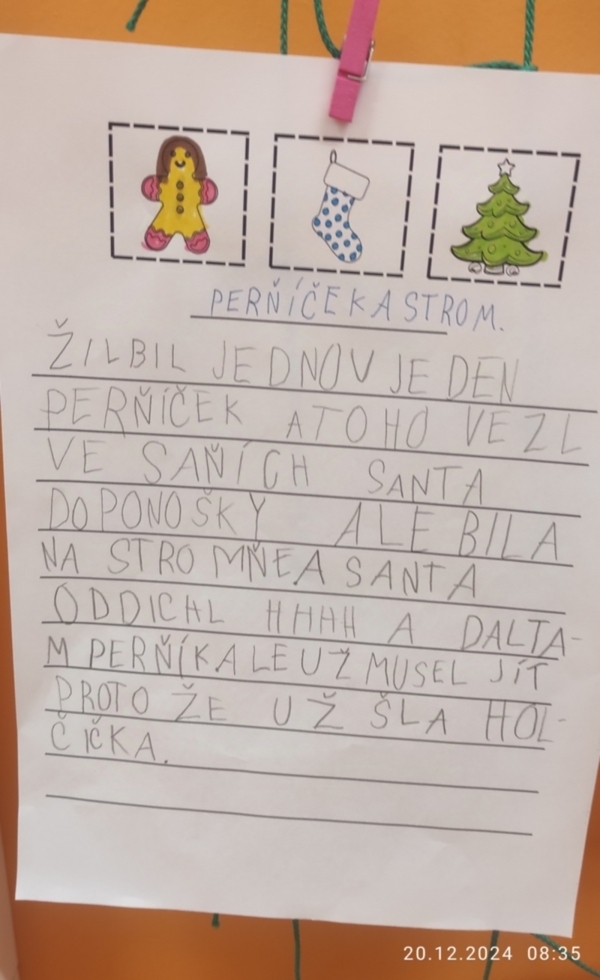 PERŇÍČEK A STROM.
ŽIL BIL JEDNOV JEDEN
PERŇÍČEK A TOHO VEZL
VE SAŇÍCH SANTA
DO PONOŠKY ALE BILA
NA STROMŇE A SANTA
ODDICHL HHHH A DAL TA-
M PERŇÍK ALE UŽ MUSEL JÍT
PROTO ŽE UŽ ŠLA HOL-
ČIČKA.
20.12.2024 08:35